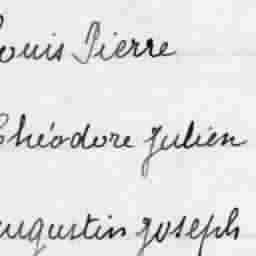 Louis Pierre
Théodore Julien
Augustin Joseph